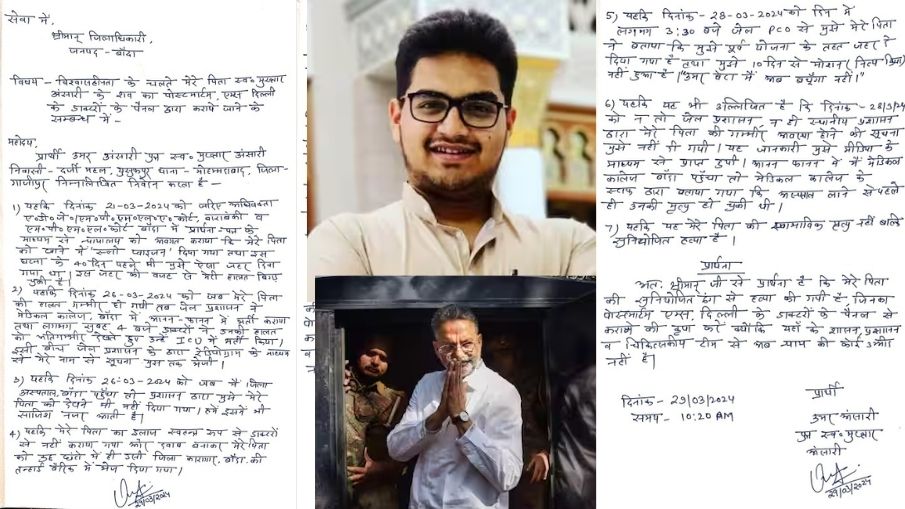 सेवा में,
श्रीमान् जिलाधिकारी,
जनपद - बाँदा
विषय - विश्वासहीनता के चलते मेरे पिता स्व० मुख्तार
अंसारी के शव का पोस्टमार्टम, एम्स दिल्ली
के डाक्टरों के पैनल द्वारा कराये जाने के
सम्बन्ध में -
महोदय,
प्रार्थी उमर अंसारी पुत्र स्व० मुख्तार अंसारी
निवासी - दर्जी मुहल्ला, युसुफपुर थाना - मोहम्मदाबाद, जिला -
गाजीपुर निम्नलिखित निवेदन करता है -
1) यहकि दिनांक 21-03-2024 को जरिए अधिवक्ता
ए०डी०जे०/एम०पी०एम०एल०ए० कोर्ट, बाराबंकी व
एम०पी०एम०एल० कोर्ट बाँदा में प्रार्थना-पत्र के
माध्यम से न्यायालय को अवगत कराया कि मेरे पिता
को खाने में "स्लो प्वाइजन" दिया गया तथा इस
घटना के 40 दिन पहले भी मुझे ऐसा जहर दिया
गया था। इस जहर की वजह से मेरी हालत बिगड़
चुकी है।
2) यहकि दिनांक 26-03-2024 को जब मेरे पिता
की हालत गम्भीर हो गयी तब जेल प्रशासन ने
मेडिकल कालेज, बाँदा में आनन-फानन में भर्ती कराया
तथा लगभग सुबह 4 बजे डाक्टरों ने उनकी हालत
को अतिगम्भीर देखते हुए उन्हें ICU में भर्ती किया।
इसी बीच जेल प्रशासन के द्वारा रेडियोग्राम के माध्यम
से मेरे नाम से सूचना मुझ तक भेजी।
3) यहकि दिनांक 26-03-2024 को जब मैं जिला
अस्पताल, बाँदा पहुँचा तो प्रशासन द्वारा मुझे मेरे
पिता को देखने भी नहीं दिया गया। हमें इसमें भी
साजिश नजर आती है।
4) यहकि मेरे पिता का इलाज स्वतन्त्र रूप से डाक्टरों
से नहीं कराया गया और दबाव बनाकर मेरे पिता
को कुछ घंटों में ही उसी जिला कारागार, बाँदा की
तन्हाई बैरिक में भेज दिया गया।
29/03/2024
5) यहकि दिनांक - 28-03-2024 को दिन में
लगभग 3:30 बजे जेल PCO से मुझे मेरे पिता
ने बताया कि मुझे पूर्व योजना के तहत जहर दे
दिया गया है तथा मुझे 10 दिन से मोशन (नित्य क्रिया)
नहीं हुआ है। "उमर बेटा मैं अब बचूँगा नहीं।"
6) यहकि यह भी उल्लिखित है कि दिनांक - 28/3/24
को न तो जेल प्रशासन, न ही स्थानीय प्रशासन
द्वारा मेरे पिता की गम्भीर अवस्था होने की सूचना
मुझे नहीं दी गयी। यह जानकारी मुझे मीडिया के
माध्यम से प्राप्त हुयी। आनन फानन में मैं मेडिकल
कालेज बाँदा पहुँचा तो मेडिकल कालेज के
स्टाफ द्वारा बताया गया कि अस्पताल लाने से पहले
ही उनकी मृत्यु हो चुकी थी।
7) यहकि यह मेरे पिता की स्वाभाविक मृत्यु नहीं बल्कि
सुनियोजित हत्या है।
प्रार्थना
अतः श्रीमान् जी से प्रार्थना है कि मेरे पिता
की सुनियोजित ढंग से हत्या की गयी है, जिनका
पोस्टमार्टम एम्स, दिल्ली के डाक्टरों के पैनल से
कराने की कृपा करें क्योंकि यहाँ के शासन, प्रशासन
व चिकित्सकीय टीम से अब न्याय की कोई उम्मीद
नहीं है।
दिनांक - 29/03/2024
समय - 10:20 AM
प्रार्थी
उमर अंसारी
पुत्र स्व० मुख्तार
अंसारी
29/03/2024